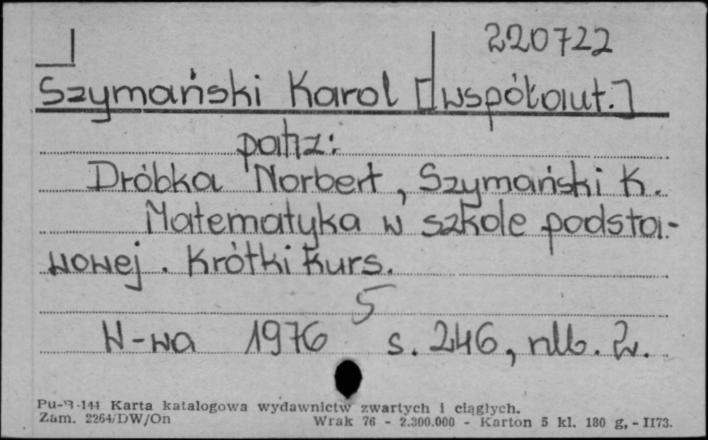 220722
Szymański Karol [współaut.]
patrz:
Dróbka Norbert, Szymański K.
Matematyka w szkole podsta-
wowej. Krótki kurs.
5
W-wa 1976 s. 246, nlb. 2.
Pu-B-144 Karta katalogowa wydawnictw zwartych i ciągłych.
Zam. 2264/DW/On Wrak 76 - 2.300.000 - Karton 5 kl. 180 g, - II73.